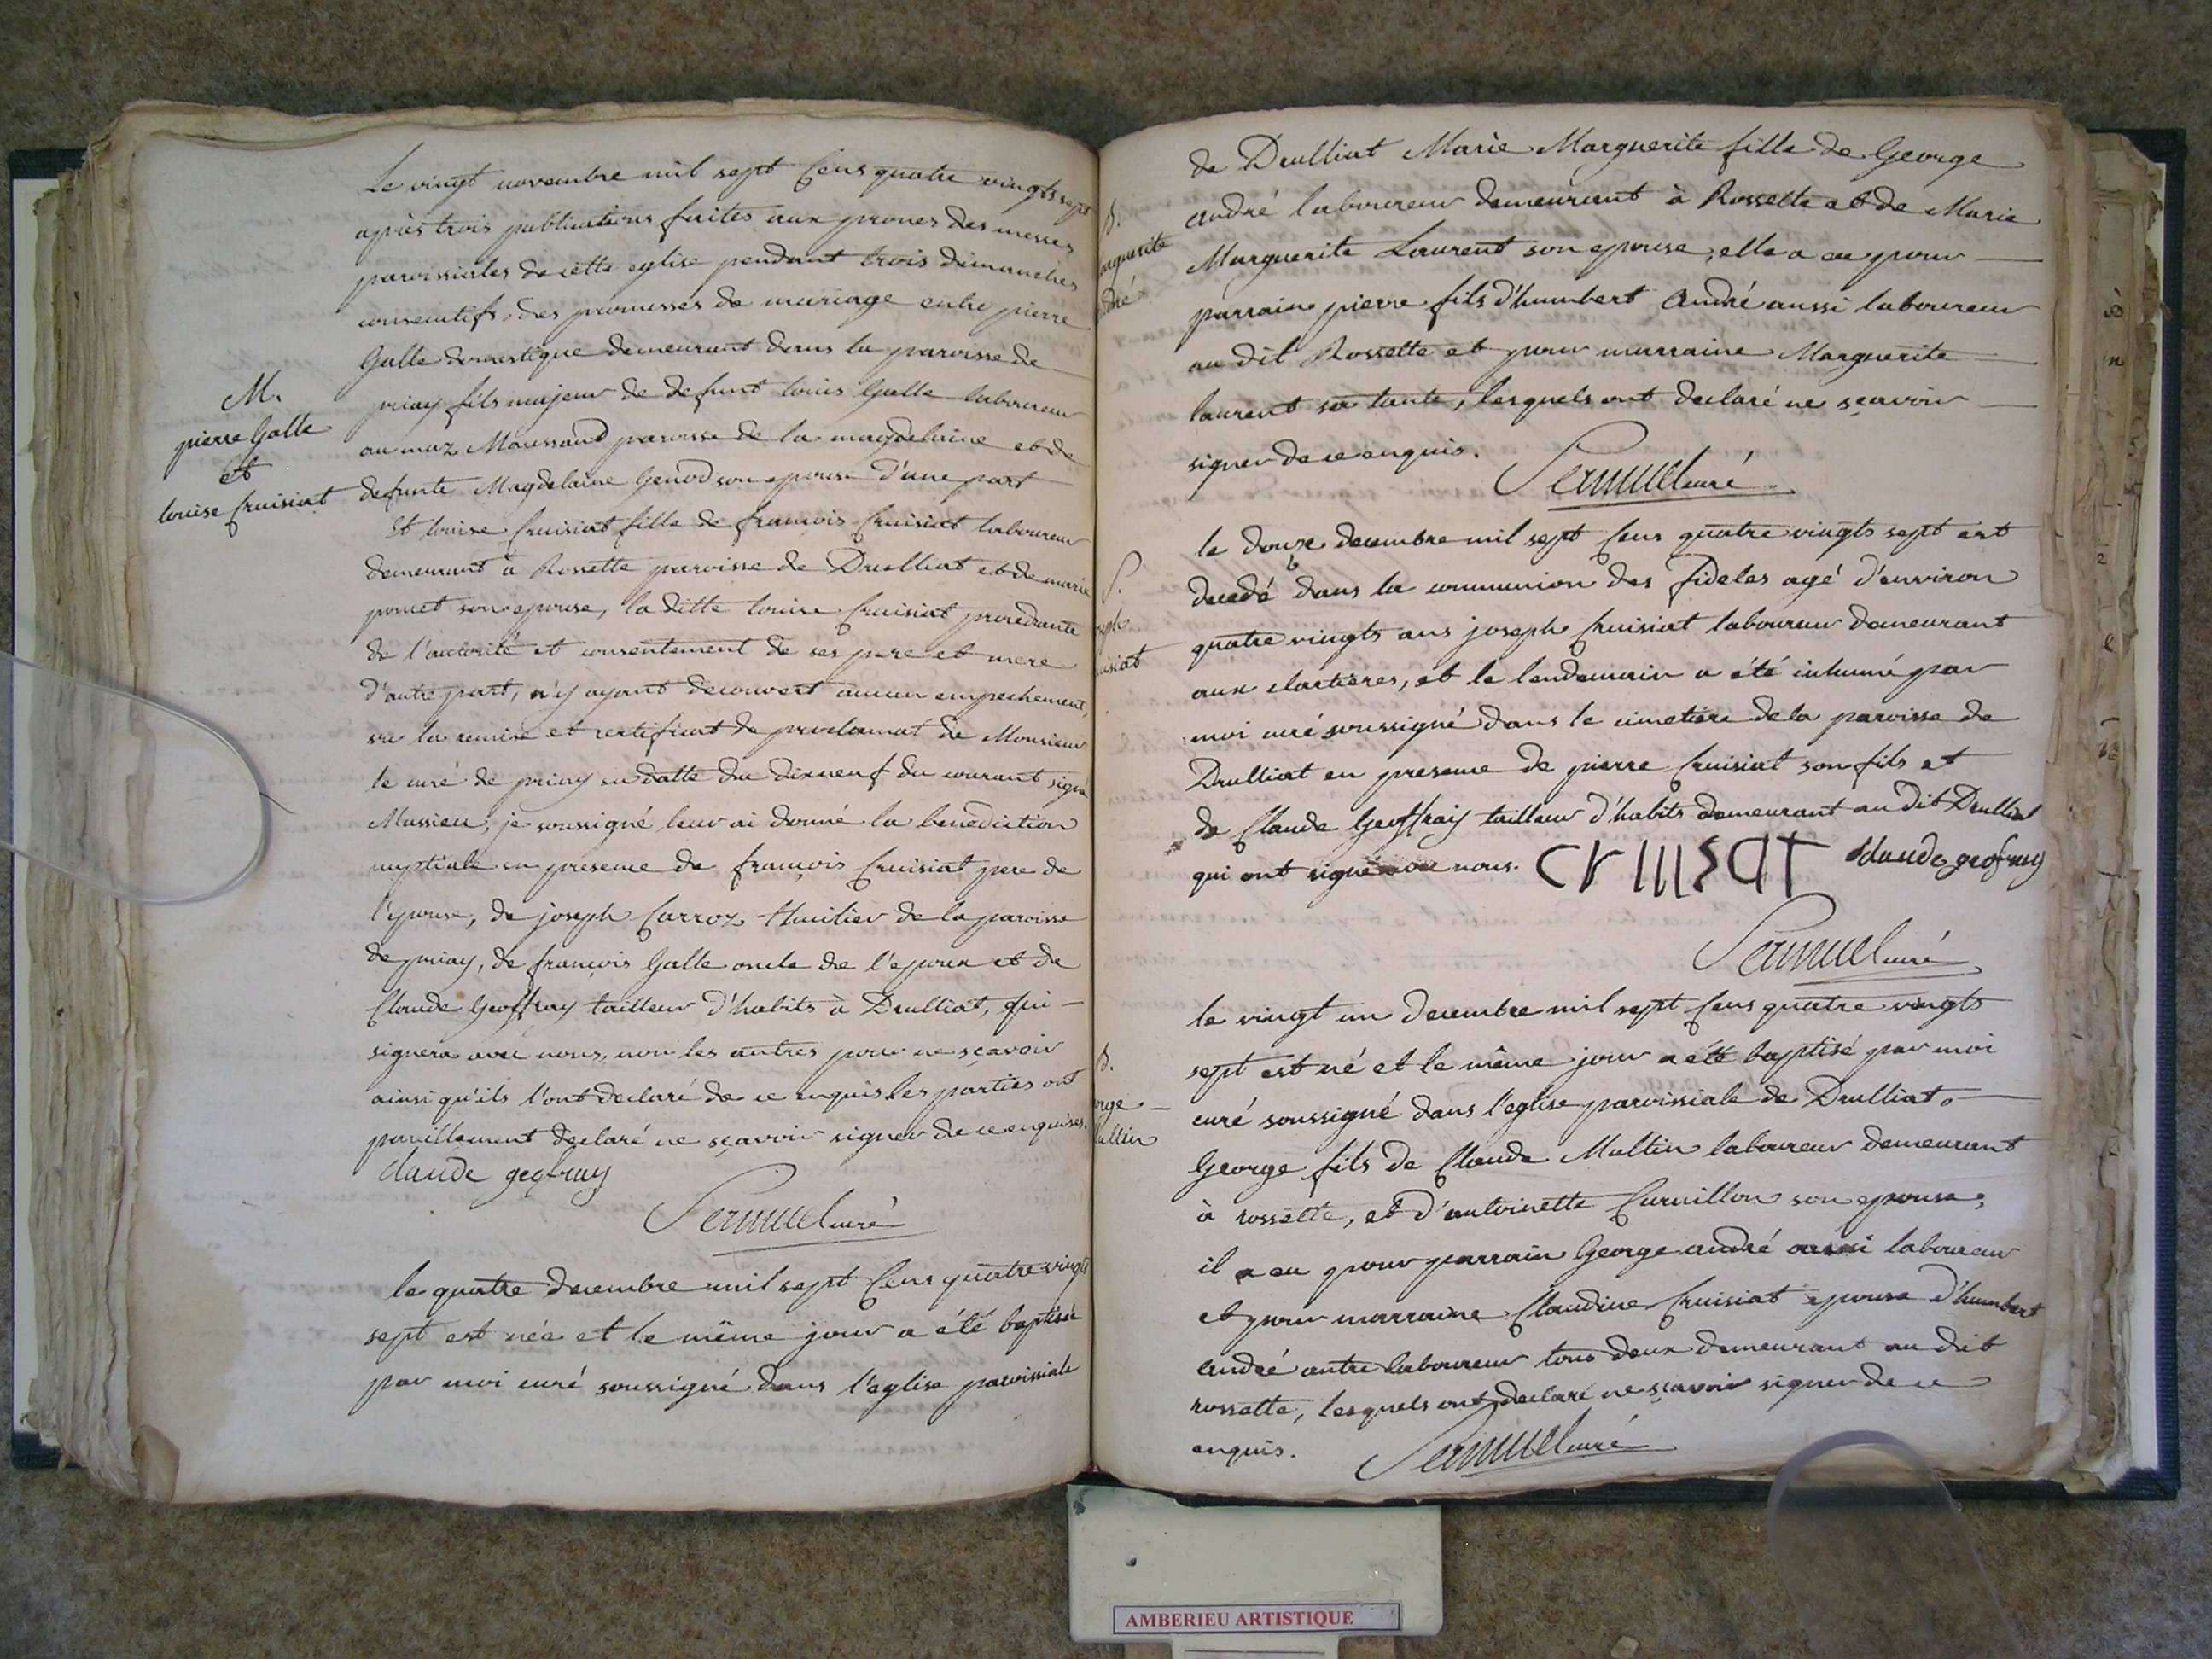 Le vingt novembre mil sept Cens quatre vingts sept
après trois publications faites aux prones des messes
paroissiales de cette eglise pendant trois dimanches
consecutifs, des promesses de mariage entre pierre
Galle domestique demeurant dans la paroisse de
priay fils majeur de defunt louis Galle laboureur
au maz Moussand paroisse de la magdelaine et de
defunte Magdelaine Genod son epouse d'une part
M.
pierre Galle
et
louise Cruisiat
Et louise Cruisiat fille de françois Cruisiat laboureur
demeurant à Rossette paroisse de Drulliat et de marie
poncet son epouse, la ditte louise Cruisiat procedante
de l'autorité et consentement de ses pere et mere
d'autre part, n'y ayant decouvert aucun empechement,
vu la remise et certificat de proclamat de Monsieur
le curé de priay en datte du dixneuf du courant signé
Massieu, je soussigné leur ai donné la benediction
nuptiale en presence de françois Cruisiat pere de
l'epouse, de joseph Carroz thuilier de la paroisse
de priay, de françois Galle oncle de l'epoux et de
Claude Geoffray tailleur d'habits à Drulliat, qui
signera avec nous, non les autres pour ne sçavoir
ainsi qu'ils l'ont declaré de ce enquis les parties ont
pareillement declaré ne sçavoir signer de ce enquises.
claude geofray
curé
le quatre decembre mil sept Cens quatre vingts
sept est née et le même jour a été baptisée
par moi curé soussigné dans l'eglise paroissiale
de Drulliat Marie Marguerite fille de George
andré laboureur demeurant à Rossette et de Marie
Marguerite Laurent son epouse, elle a eu pour
parrain pierre fils d'humbert André aussi laboureur
au dit Rossette et pour marraine Marguerite
laurent sa tante, lesquels ont declaré ne sçavoir
signer de ce enquis.
curé
B.
arguerite
dré
le douze decembre mil sept Cens quatre vingts sept est
decedé dans la communion des fideles agé d'environ
quatre vingts ans joseph Cruisiat laboureur demeurant
aux clartières, et le lendemain a été inhumé par
moi curé soussigné dans le cimetiere de la paroisse de
Drulliat en presence de pierre Cruisiat son fils et
de Claude Geoffray tailleur d'habits demeurant au dit Drulliat
qui ont signé avec nous. claude geofray
S.
seph
uisiat
curé
le vingt un decembre mil sept Cens quatre vingts
sept est né et le même jour a été baptisé par moi
curé soussigné dans l'eglise paroissiale de Drulliat
George fils de Claude Maltin laboureur demeurant
à rossette, et d'antoinette Curnillon son epouse,
il a eu pour parrain George andré aussi laboureur
et pour marraine Claudine Cruisiat epouse d'humbert
andré autre laboureur tous deux demeurant au dit
rossette, lesquels ont declaré ne sçavoir signer de ce
enquis. curé
B.
orge
altin
AMBERIEU ARTISTIQUE